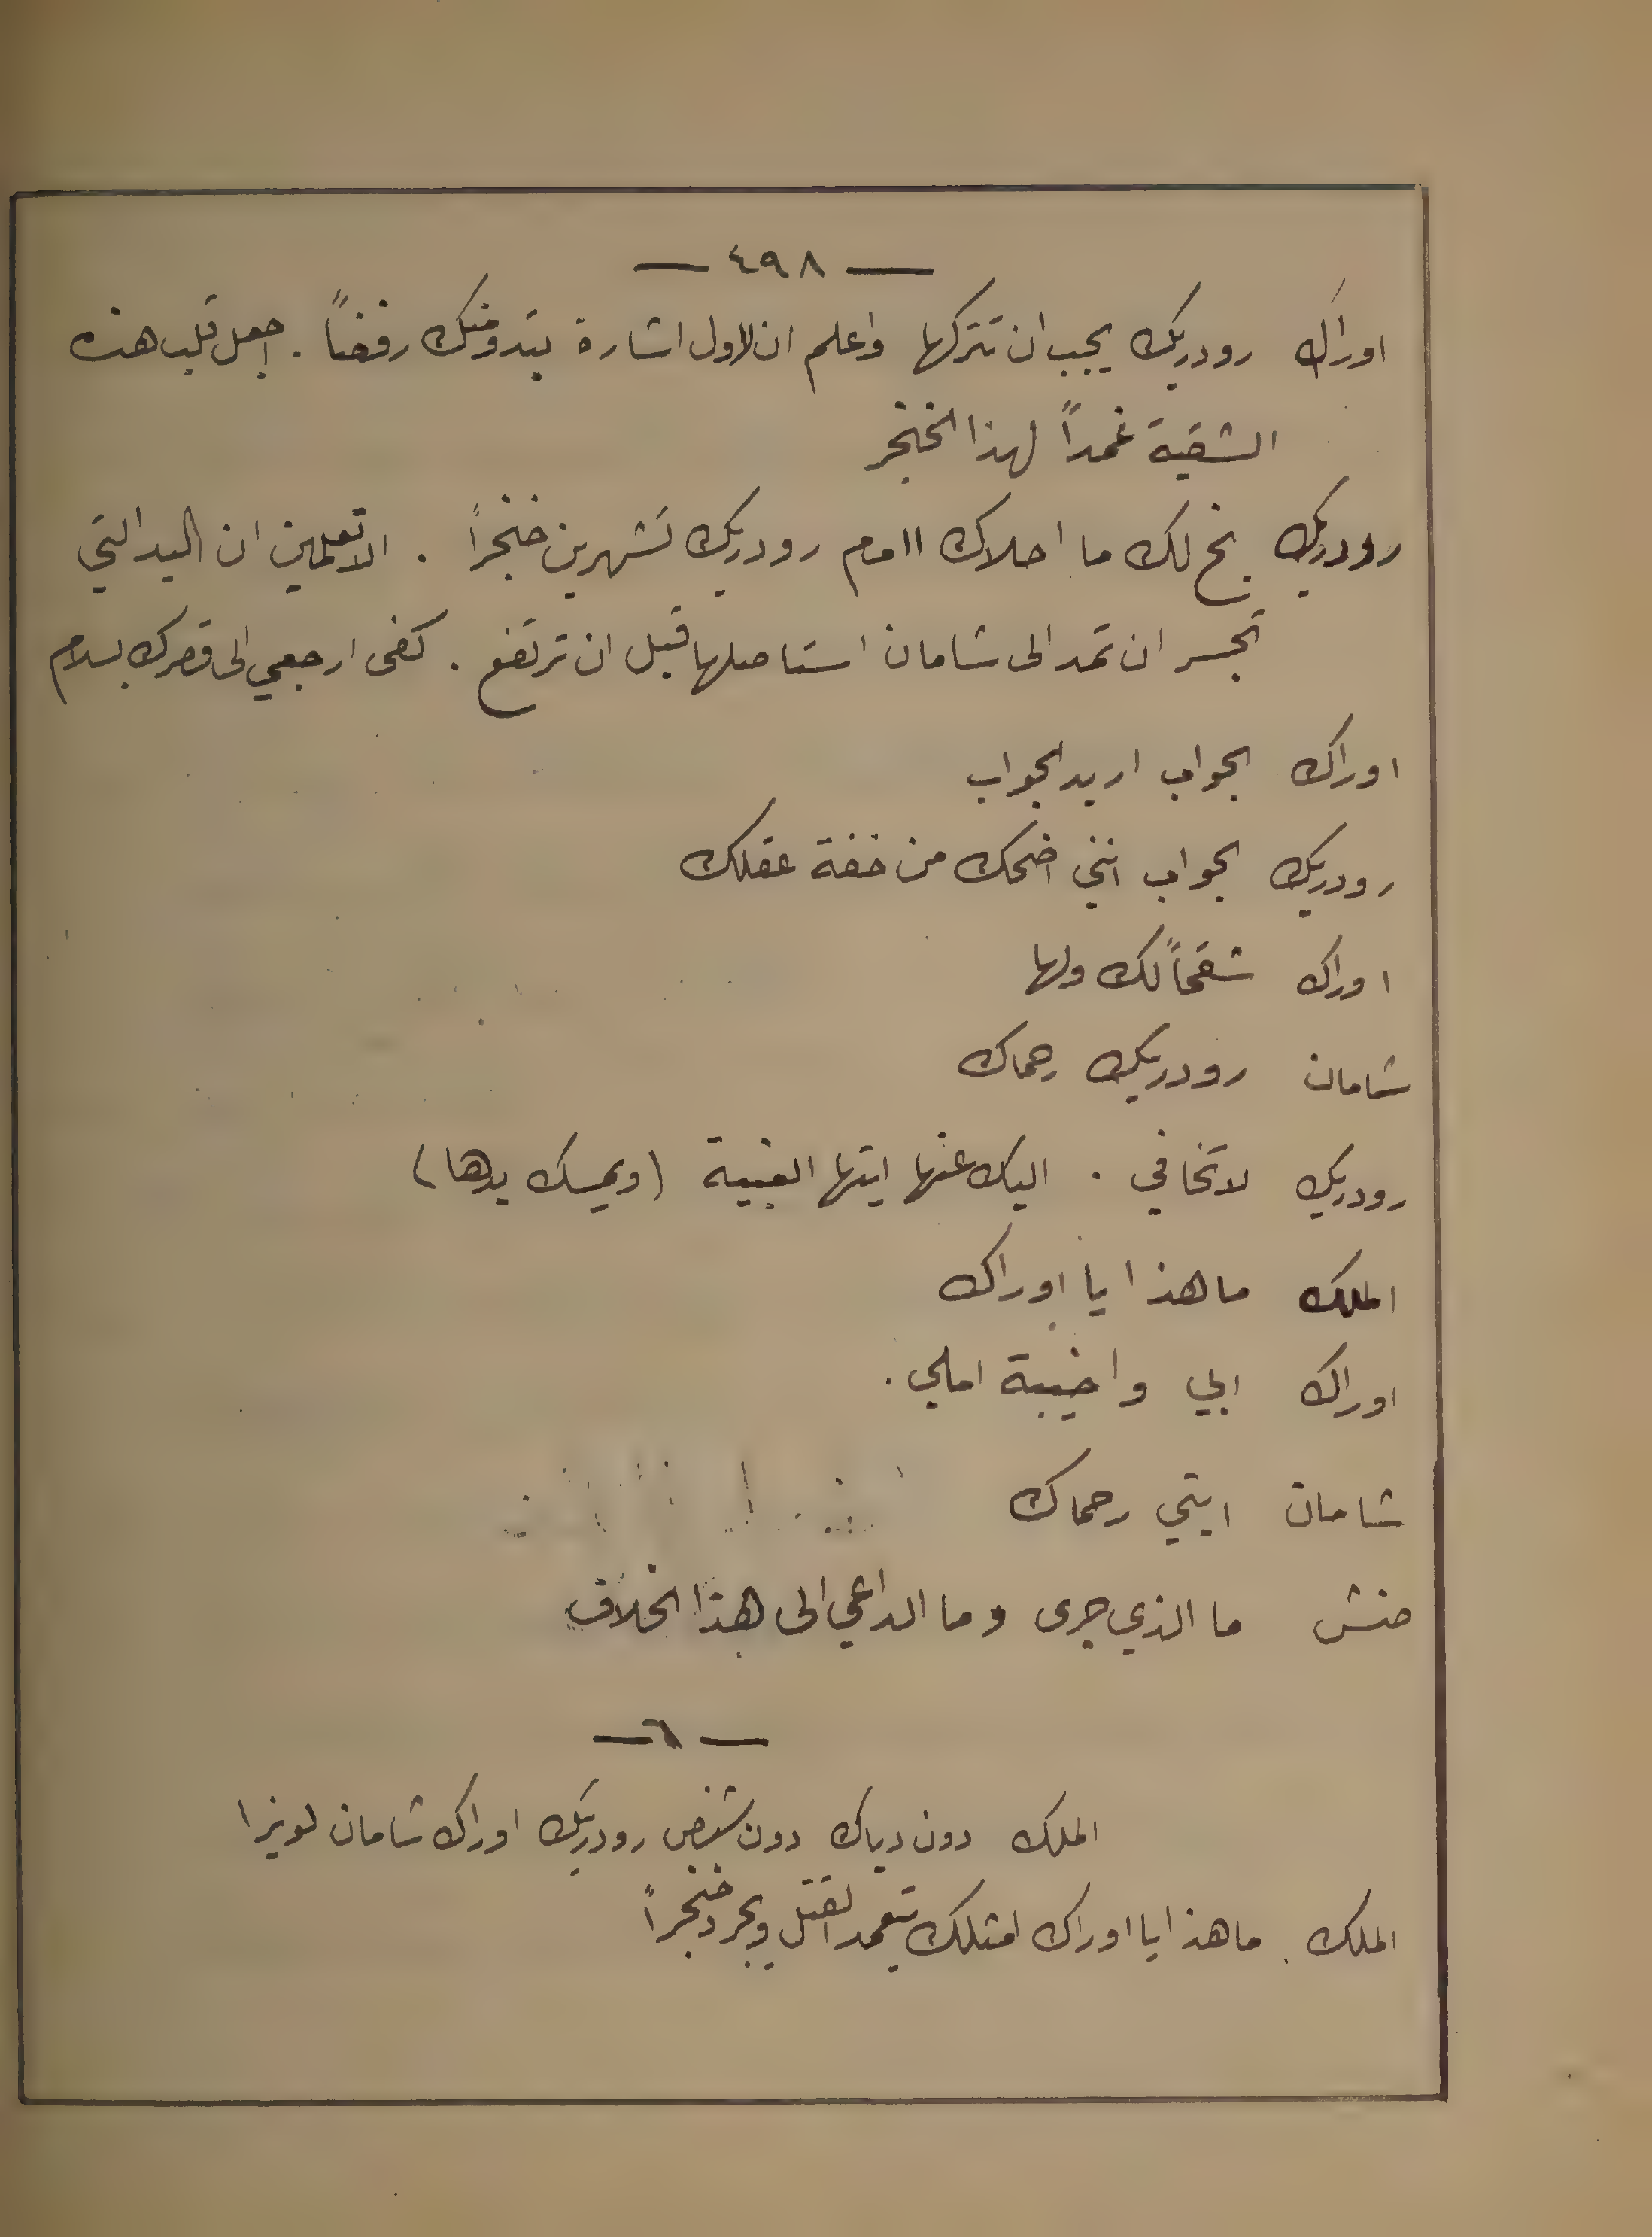 — ٤٩٨ —
اوراك رودريك يجب ان تتركها واعلم ان لاول اشارة تبدو منك رفضاً . اجعل قلب هذه
الشقية غمداً لهذا الخنجر
رودريك بخ لك ما احلاك اامام رودريك تشهرين خنجراً . الا تعلمين ان اليد التي
تجسر ان تمد الى شامان استاصلها قبل ان ترتفع . كفى ارجعي الى قصرك بسلام
اوراك الجواب اريد الجواب
رودريك الجواب انني اضحك من خفة عقلك
اوراك شقحاً لك ولها
شامان رودريك رحماك
رودريك لا تخافي . اليك عنها ايتها الغبية (ويمسك يدها)
الملك ما هذا يا اوراك
اوراك ابي واخيبة املي .
شامان ابتي رحماك
منش ما الذي جرى وما الداعي الى هذا الخلاف
— ٦ —
الملك دون دياك دون شنص رودريك اوراك شامان لويزا
الملك ما هذا يا اوراك امثلك يتعمد القتل ويجرد خنجراً